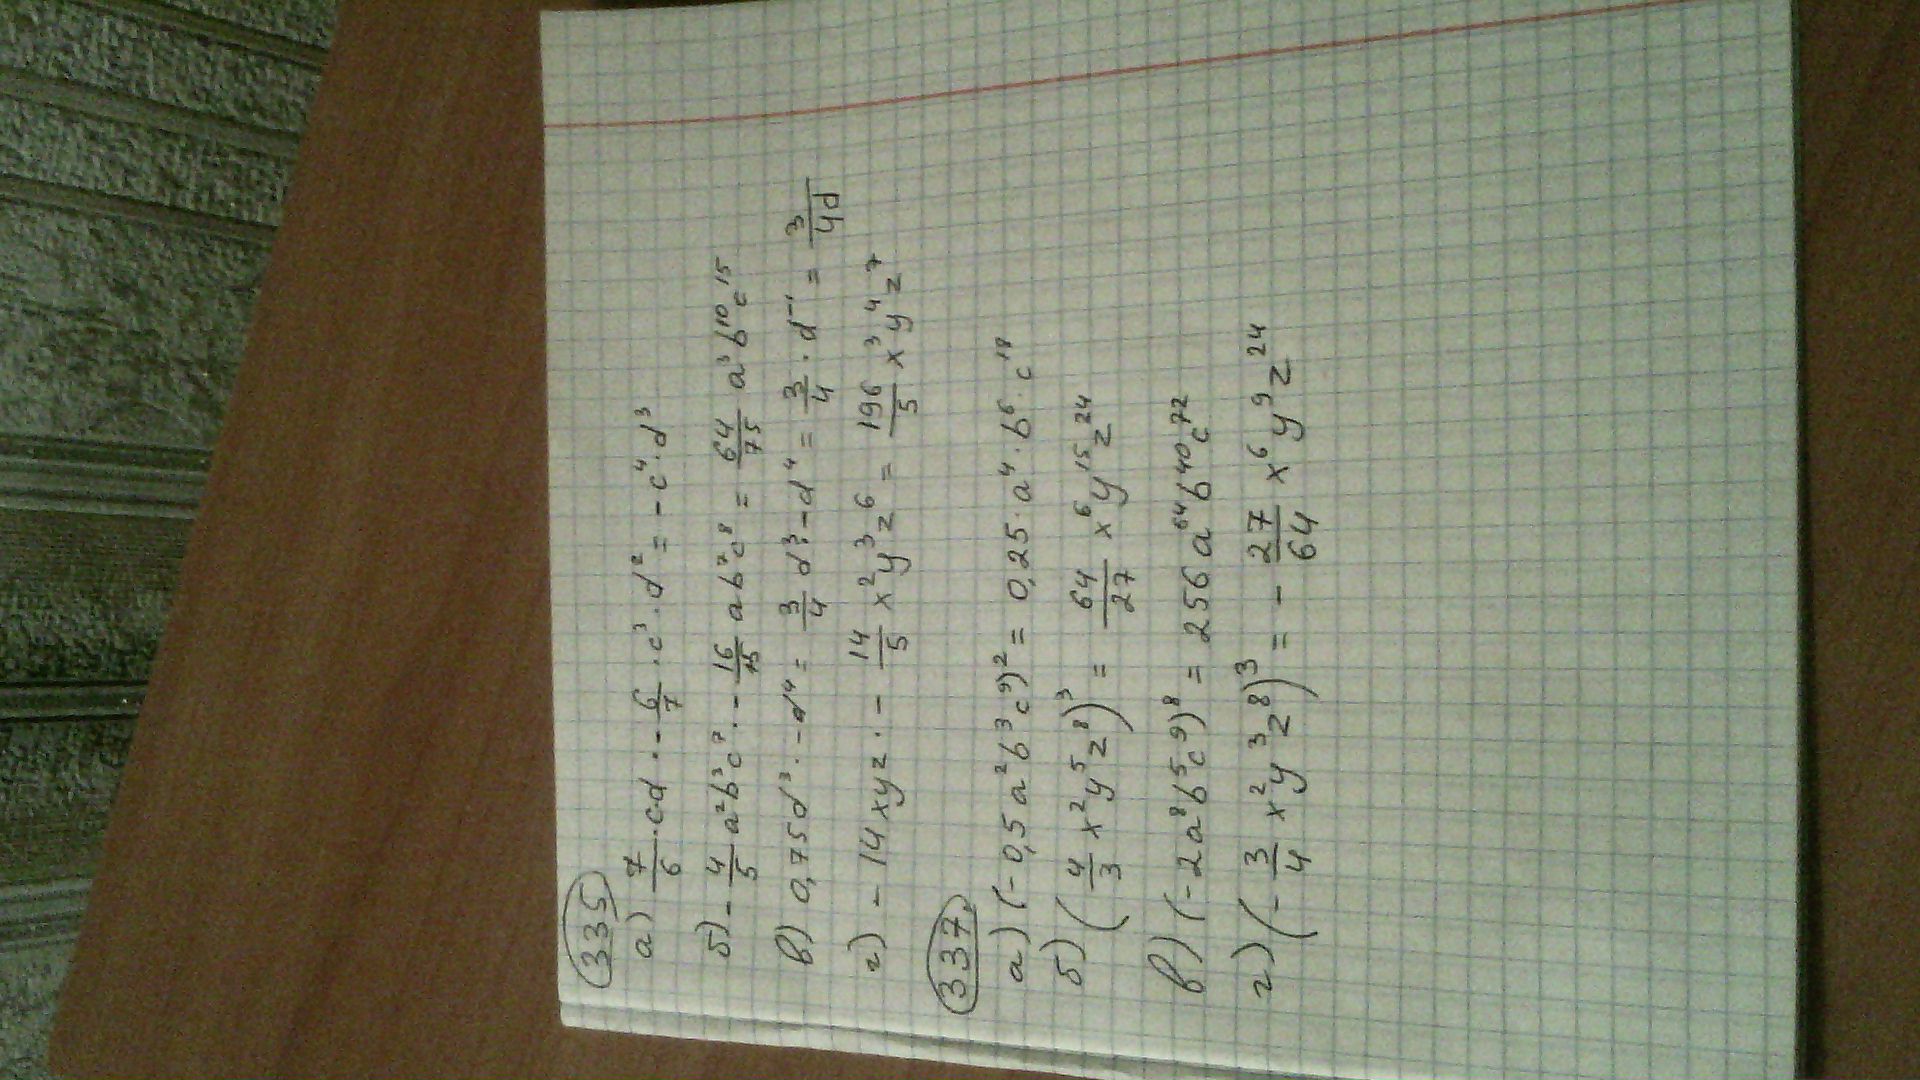 335
а) 7/6 · cd · - 6/7 · c³ · d² = - c⁴ · d³
б) - 4/5 a²b³c⁷ · - 16/15 ab⁷c⁸ = 64/75 a³b¹⁰c¹⁵
в) 0,75d³ · -d⁴ = 3/4 d³ · -d⁴ = 3/4 · d⁻¹ = 3/4d
г) - 14xyz · - 14/5 x²y³z⁶ = 196/5 x³y⁴z⁷
337
а) (-0,5a²b³c⁹)² = 0,25 · a⁴ · b⁶ · c¹⁸
б) (4/3 x²y⁵z⁸)³ = 64/27 x⁶y¹⁵z²⁴
в) (-2a⁸b⁵c⁹)⁸ = 256a⁶⁴b⁴⁰c⁷²
г) (- 3/4 x²y³z⁸)³ = - 27/64 x⁶y⁹z²⁴